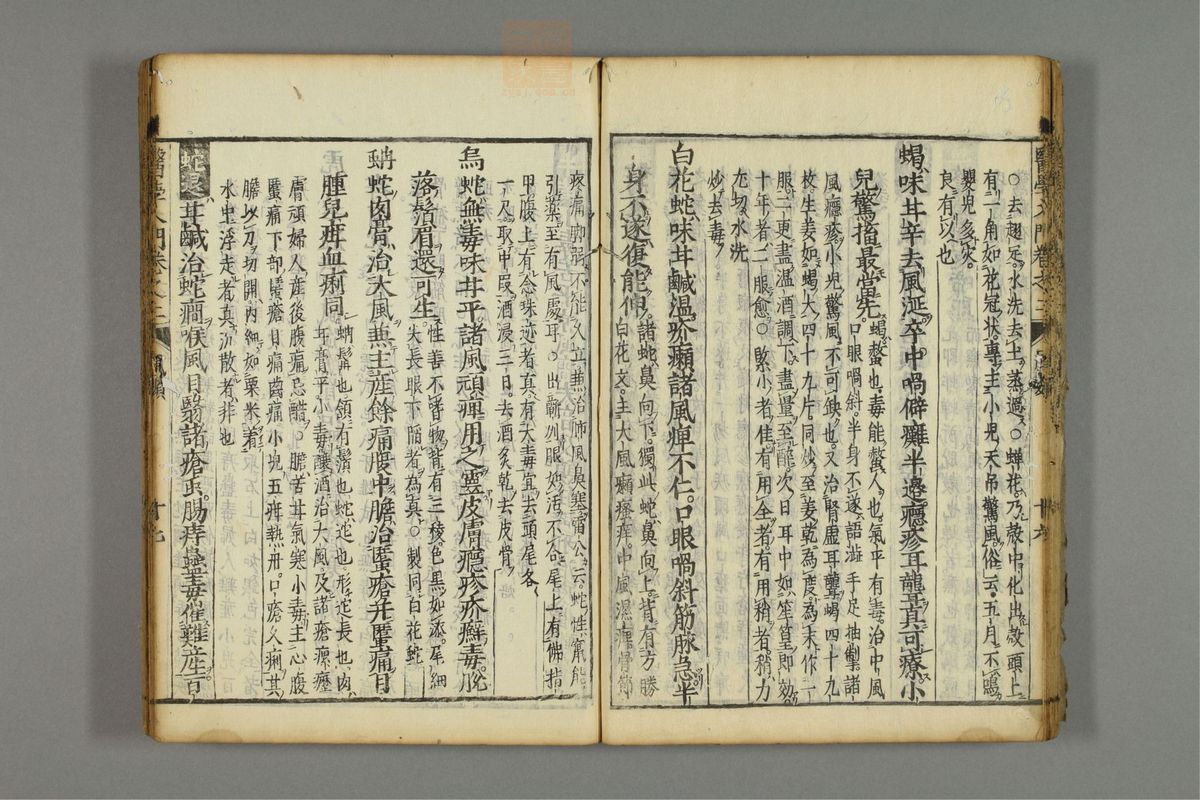 ○去翅足水洗去土蒸過○蟬花乃殼中化出殼頭上
有一角如花冠狀專主小児天吊驚風俗云五月不鳴
嬰児多災
良有以也
蝎味甘辛去風涎卒中喎僻癱半邉癮疹耳聾真可療小
児驚搐最當先
蝎螫也毒能螫人也氣平有毒治中風
口眼喎斜半身不遂語澁手足抽掣諸
風癮疹小児驚風不可缺也又治腎虚耳聾蝎四十九
枚生姜如蝎大四十九片同炒至姜乾為度為末作一
服二更盡温酒調下盡量至醉次日耳中如笙篁即効
十年者二服愈○緊小者佳有用全者有用稍者稍力
尢切水洗
炒去毒
白花蛇味甘鹹温疥癩諸風痺不仁口眼喎斜筋脉急半
身不遂復能伸
諸蛇鼻向下獨此蛇鼻向上背有方勝
白花文主大風癩癢中風濕痺骨節
疼痛脚弱不能久立兼治肺風鼻塞雷公云蛇性竄能
引薬至有風處耳○出蘄州眼如活不合尾上有佛指
甲腹上有念珠迹者真有大毒宜去頭尾各
一尺取中段酒浸三日去酒炙乾去皮骨
烏蛇無毒味甘平諸風頑痺用之靈皮膚癮疹疥癬毒脱
落鬚眉還可生
性善不嗜物背有三稜色黒如漆尾細
尖長眼下陥者為真○製同白花蛇
蚺蛇肉膏治大風兼主産餘痛腹中膽治䘌瘡并擪痛目
腫児疳血痢同
蚺髯也領有鬚也蛇迱也形迱長也肉
甘膏平小毒釀酒治大風及諸瘡瘰癧
膚頑婦人産後腹痛忌醋○膽苦甘氣寒小毒主心腹
䘌痛下部䘌瘡目痛齒痛小児五疳熱丹口瘡久痢其
膽以刀切開内細如粟米着
水中浮走者真沉散者非也
蛇退甘鹹治蛇癇喉風目翳諸瘡㽲腸痔蠱毒催難産百
醫學入門卷之二